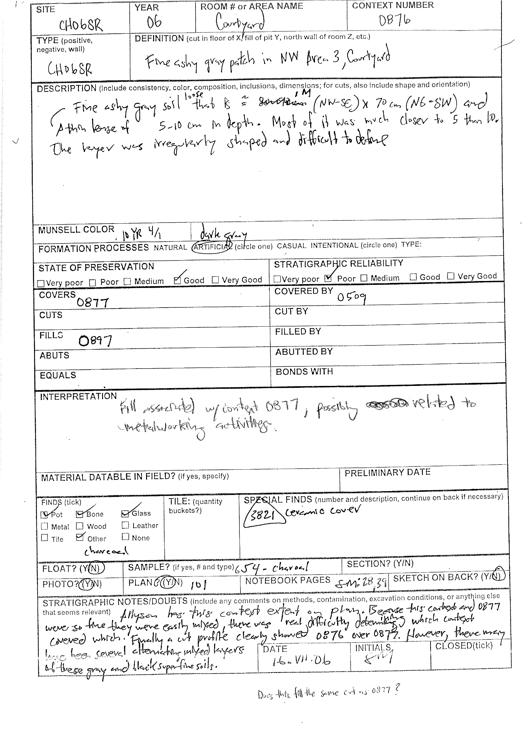 SITE YEAR ROOM # or AREA NAME CONTEXT NUMBER
CH06SR 06 Courtyard 0876
TYPE (positive, negative, wall) DEFINITION (cut in floor of X/fill of pit Y, north wall of room Z, etc.)
CH06SR Fine ashy gray patch in NW Area 3, Courtyard
DESCRIPTION (Include consistency, color, composition, inclusions, dimensions; for cuts, also include shape and orientation)
Fine ashy gray soil loose that is ≈ 1 M (NW-SE) x 70 cm (NE-SW) and
A thin lense of 5-10 cm in depth. Most of it was much closer to 5 than 10.
The layer was irregularly shaped and difficult to define
MUNSELL COLOR 10 YR 4/1 dark gray
FORMATION PROCESSES NATURAL ARTIFICIAL (circle one) CASUAL INTENTIONAL (circle one) TYPE:
STATE OF PRESERVATION STRATIGRAPHIC RELIABILITY
Very poor Poor Medium Good Very Good Very poor Poor Medium Good Very Good
COVERS 0877 COVERED BY 0509
CUTS CUT BY
FILLS 0897 FILLED BY
ABUTS ABUTTED BY
EQUALS BONDS WITH
INTERPRETATION Fill associated w/ context 0877, possibly related to
metalworking activities.
MATERIAL DATABLE IN FIELD? (if yes, specify) PRELIMINARY DATE
FINDS (tick) TILE: (quantity buckets?) SPECIAL FINDS (number and description, continue on back if necessary)
Pot Bone Glass 3821 ceramic cover
Metal Wood Leather
Tile Other None
charcoal
FLOAT? (Y/N) SAMPLE? (if yes, # and type) 654 - charcoal SECTION? (Y/N)
PHOTO? (Y/N) PLAN? (Y/N) 101 NOTEBOOK PAGES 38, 39 SKETCH ON BACK? (Y/N)
STRATIGRAPHIC NOTES/DOUBTS (include any comments on methods, contamination, excavation conditions, or anything else
that seems relevant) Allyson has this context extent on plan. Because this context and 0877
were so fine they were easily mixed, there was real difficulty determining which context
covered which. Finally a cut profile clearly showed 0876 over 0877. However, there may
have been several alternating mixed layers
of these gray and black superfine soils.
DATE INITIALS CLOSED(tick)
16-VII-06
Does this fill the same cut as 0877?